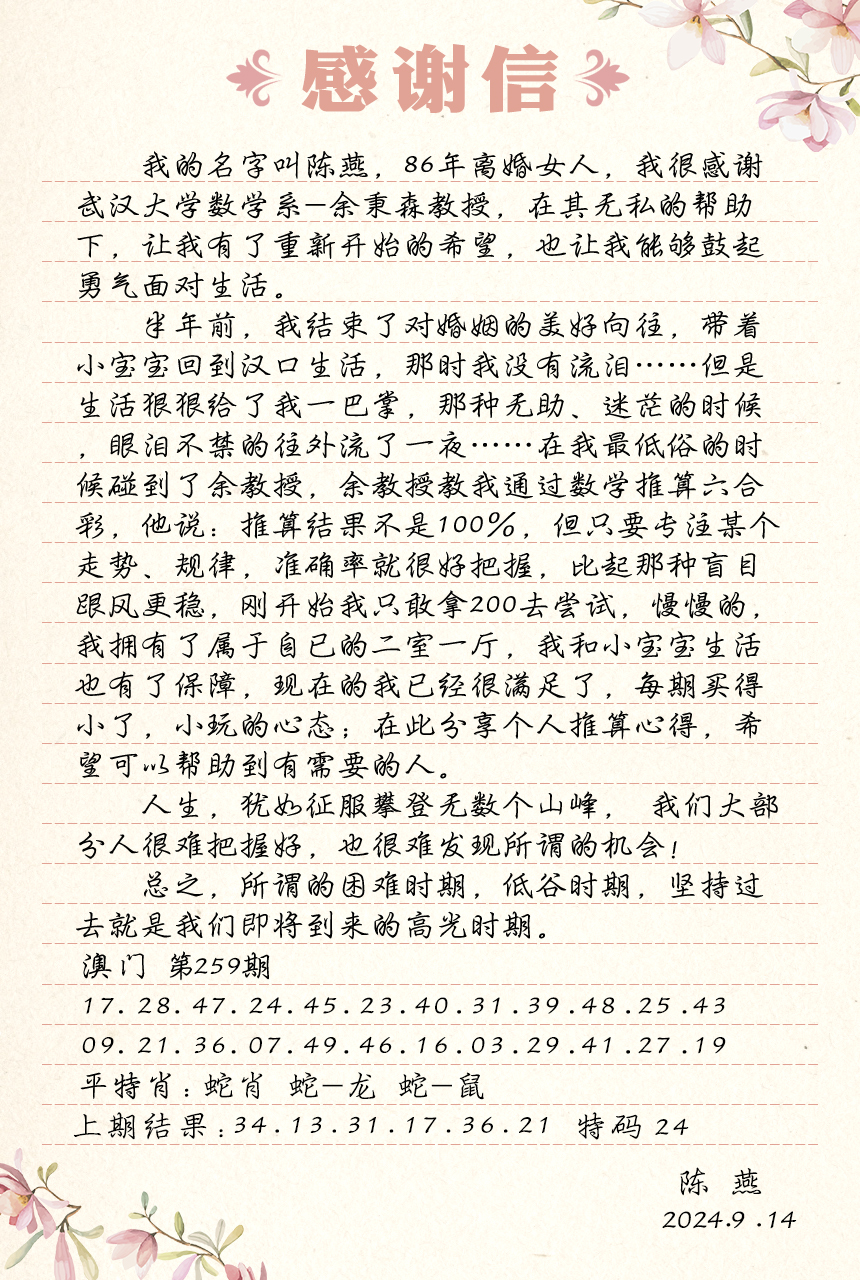 感谢信
我的名字叫陈燕，86年离婚女人，我很感谢
武汉大学数学系—余秉森教授，在其无私的帮助
下，让我有了重新开始的希望，也让我能够鼓起
勇气面对生活。
半年前，我结束了对婚姻的美好向往，带着
小宝宝回到汉口生活，那时我没有流泪……但是
生活狠狠给了我一巴掌，那种无助、迷茫的时候
，眼泪不禁的往外流了一夜……在我最低俗的时
候碰到了余教授，余教授教我通过数学推算六合
彩，他说：推算结果不是100%，但只要专注某个
走势、规律，准确率就很好把握，比起那种盲目
跟风更稳，刚开始我只敢拿200去尝试，慢慢的，
我拥有了属于自已的二室一厅，我和小宝宝生活
也有了保障，现在的我已经很满足了，每期买得
小了，小玩的心态；在此分享个人推算心得，希
望可以帮助到有需要的人。
人生，犹如征服攀登无数个山峰， 我们大部
分人很难把握好，也很难发现所谓的机会！
总之，所谓的困难时期，低谷时期，坚持过
去就是我们即将到来的高光时期。
澳门 第259期
17.28.47.24.45.23.40.31.39.48.25.43
09.21.36.07.49.46.16.03.29.41.27.19
平特肖：蛇肖 蛇—龙 蛇—鼠
上期结果：34.13.31.17.36.21 特码 24
陈 燕
2024.9.14